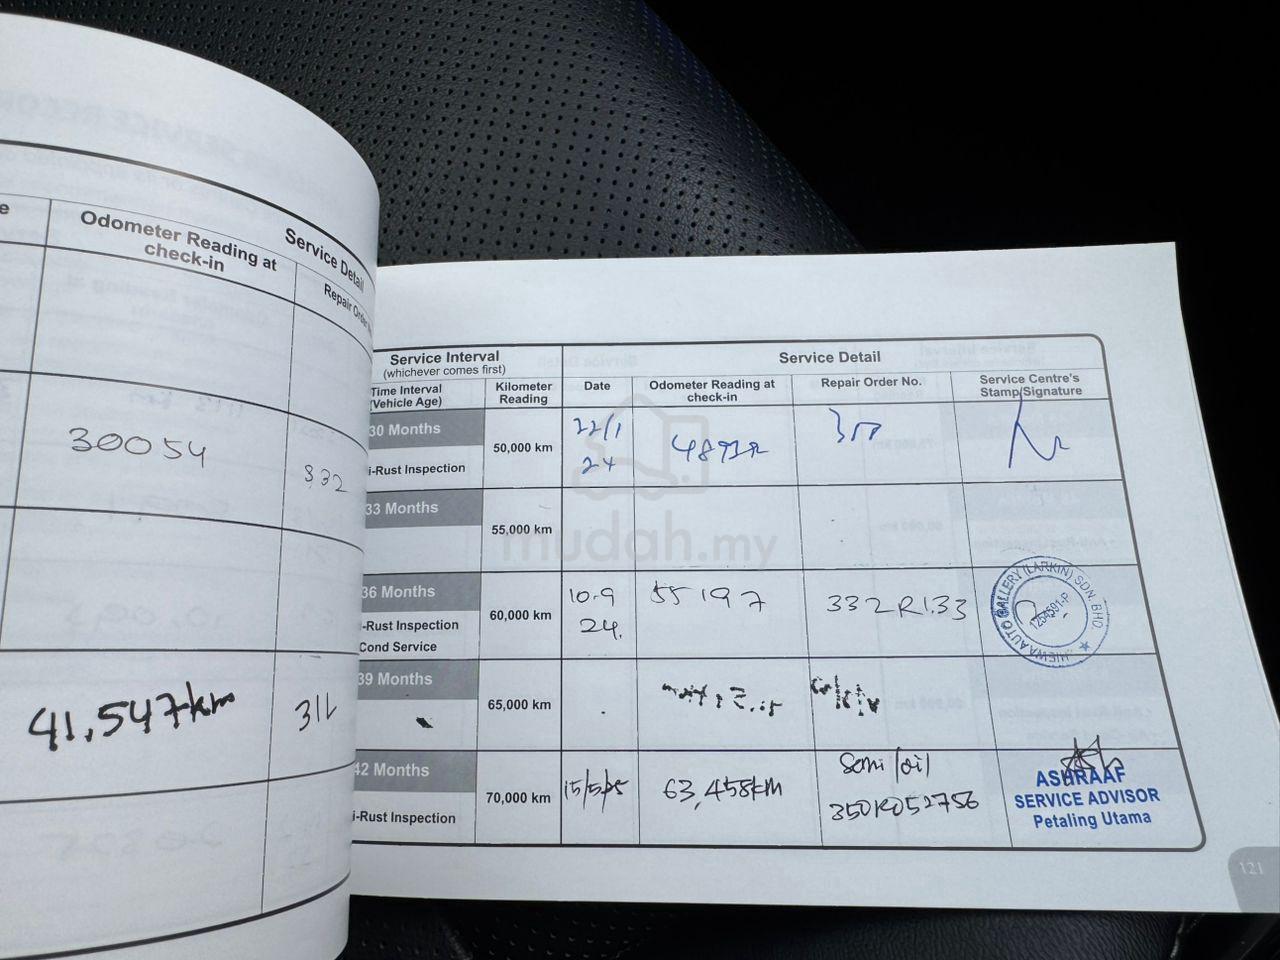 e
Odometer Reading at
check-in
Service Detail
Repair Order
30054
332
41,547km
311
Service Interval
(whichever comes first)
Service Detail
Time Interval
(Vehicle Age)
Kilometer
Reading
Date
Odometer Reading at
check-in
Repair Order No.
Service Centre's
Stamp/Signature
30 Months
i-Rust Inspection
50,000 km
22/1
24
33 Months
55,000 km
mudah.my
36 Months
i-Rust Inspection
Cond Service
60,000 km
10.9
24.
55197
332R1.33
AUTO GALLERY (LARKIN) SDN. BHD.
1254591-P
39 Months
65,000 km
42 Months
i-Rust Inspection
70,000 km
15/5/25
63,458km
Semi/oil
ASHRAAF
SERVICE ADVISOR
Petaling Utama
121